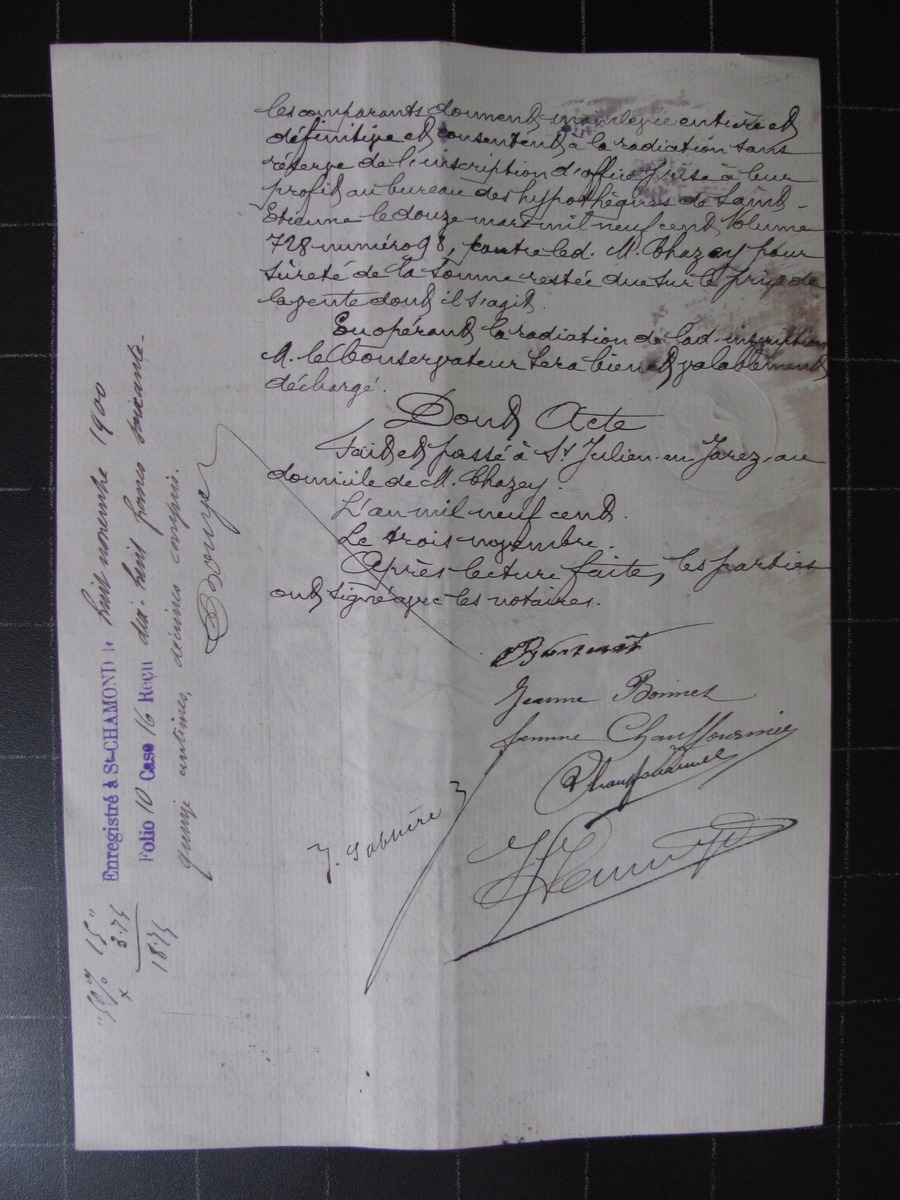 les comparants donnent mainlevée entière et
définitive et consentent à la radiation sans
réserve de l'inscription d'office prise à leur
profit au bureau des hypothèques de Saint-
Etienne le douze mars mil neuf cent Volume
728 numéro 98, contre led. M. Chazey pour
sûreté de la somme restée due sur le prix de
la vente dont il s'agit.
En opérant la radiation de lad. inscription
M. le Conservateur sera bien et valablement
déchargé.
Dont Acte
Fait et passé à St Julien-en-Jarez, au
domicile de M. Chazey.
L'an mil neuf cent.
Le trois novembre.
Après lecture faite, les parties
ont signé avec les notaires.
Jeanne Bonnet
femme Chauffournier
Enregistré à St-CHAMOND le huit novembre 1900
Folio 10 Case 16 Reçu dix-huit francs soixante-
quinze centimes, décimes compris.
50% 15"
3.75
18.75